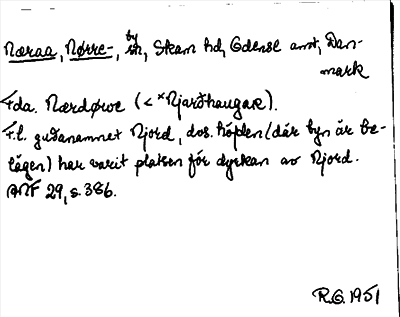 Næraa, Nørre-, by, Skam hd, Odense amt, Dan-
mark
Fda. Nærdørwe (< *Njarðhaugar).
F.l. gudanamnet Njord, dos. höjden (där byn är be-
lägen) har varit platsen för dyrkan av Njord.
ANF 29, s. 386.
R.G. 1951